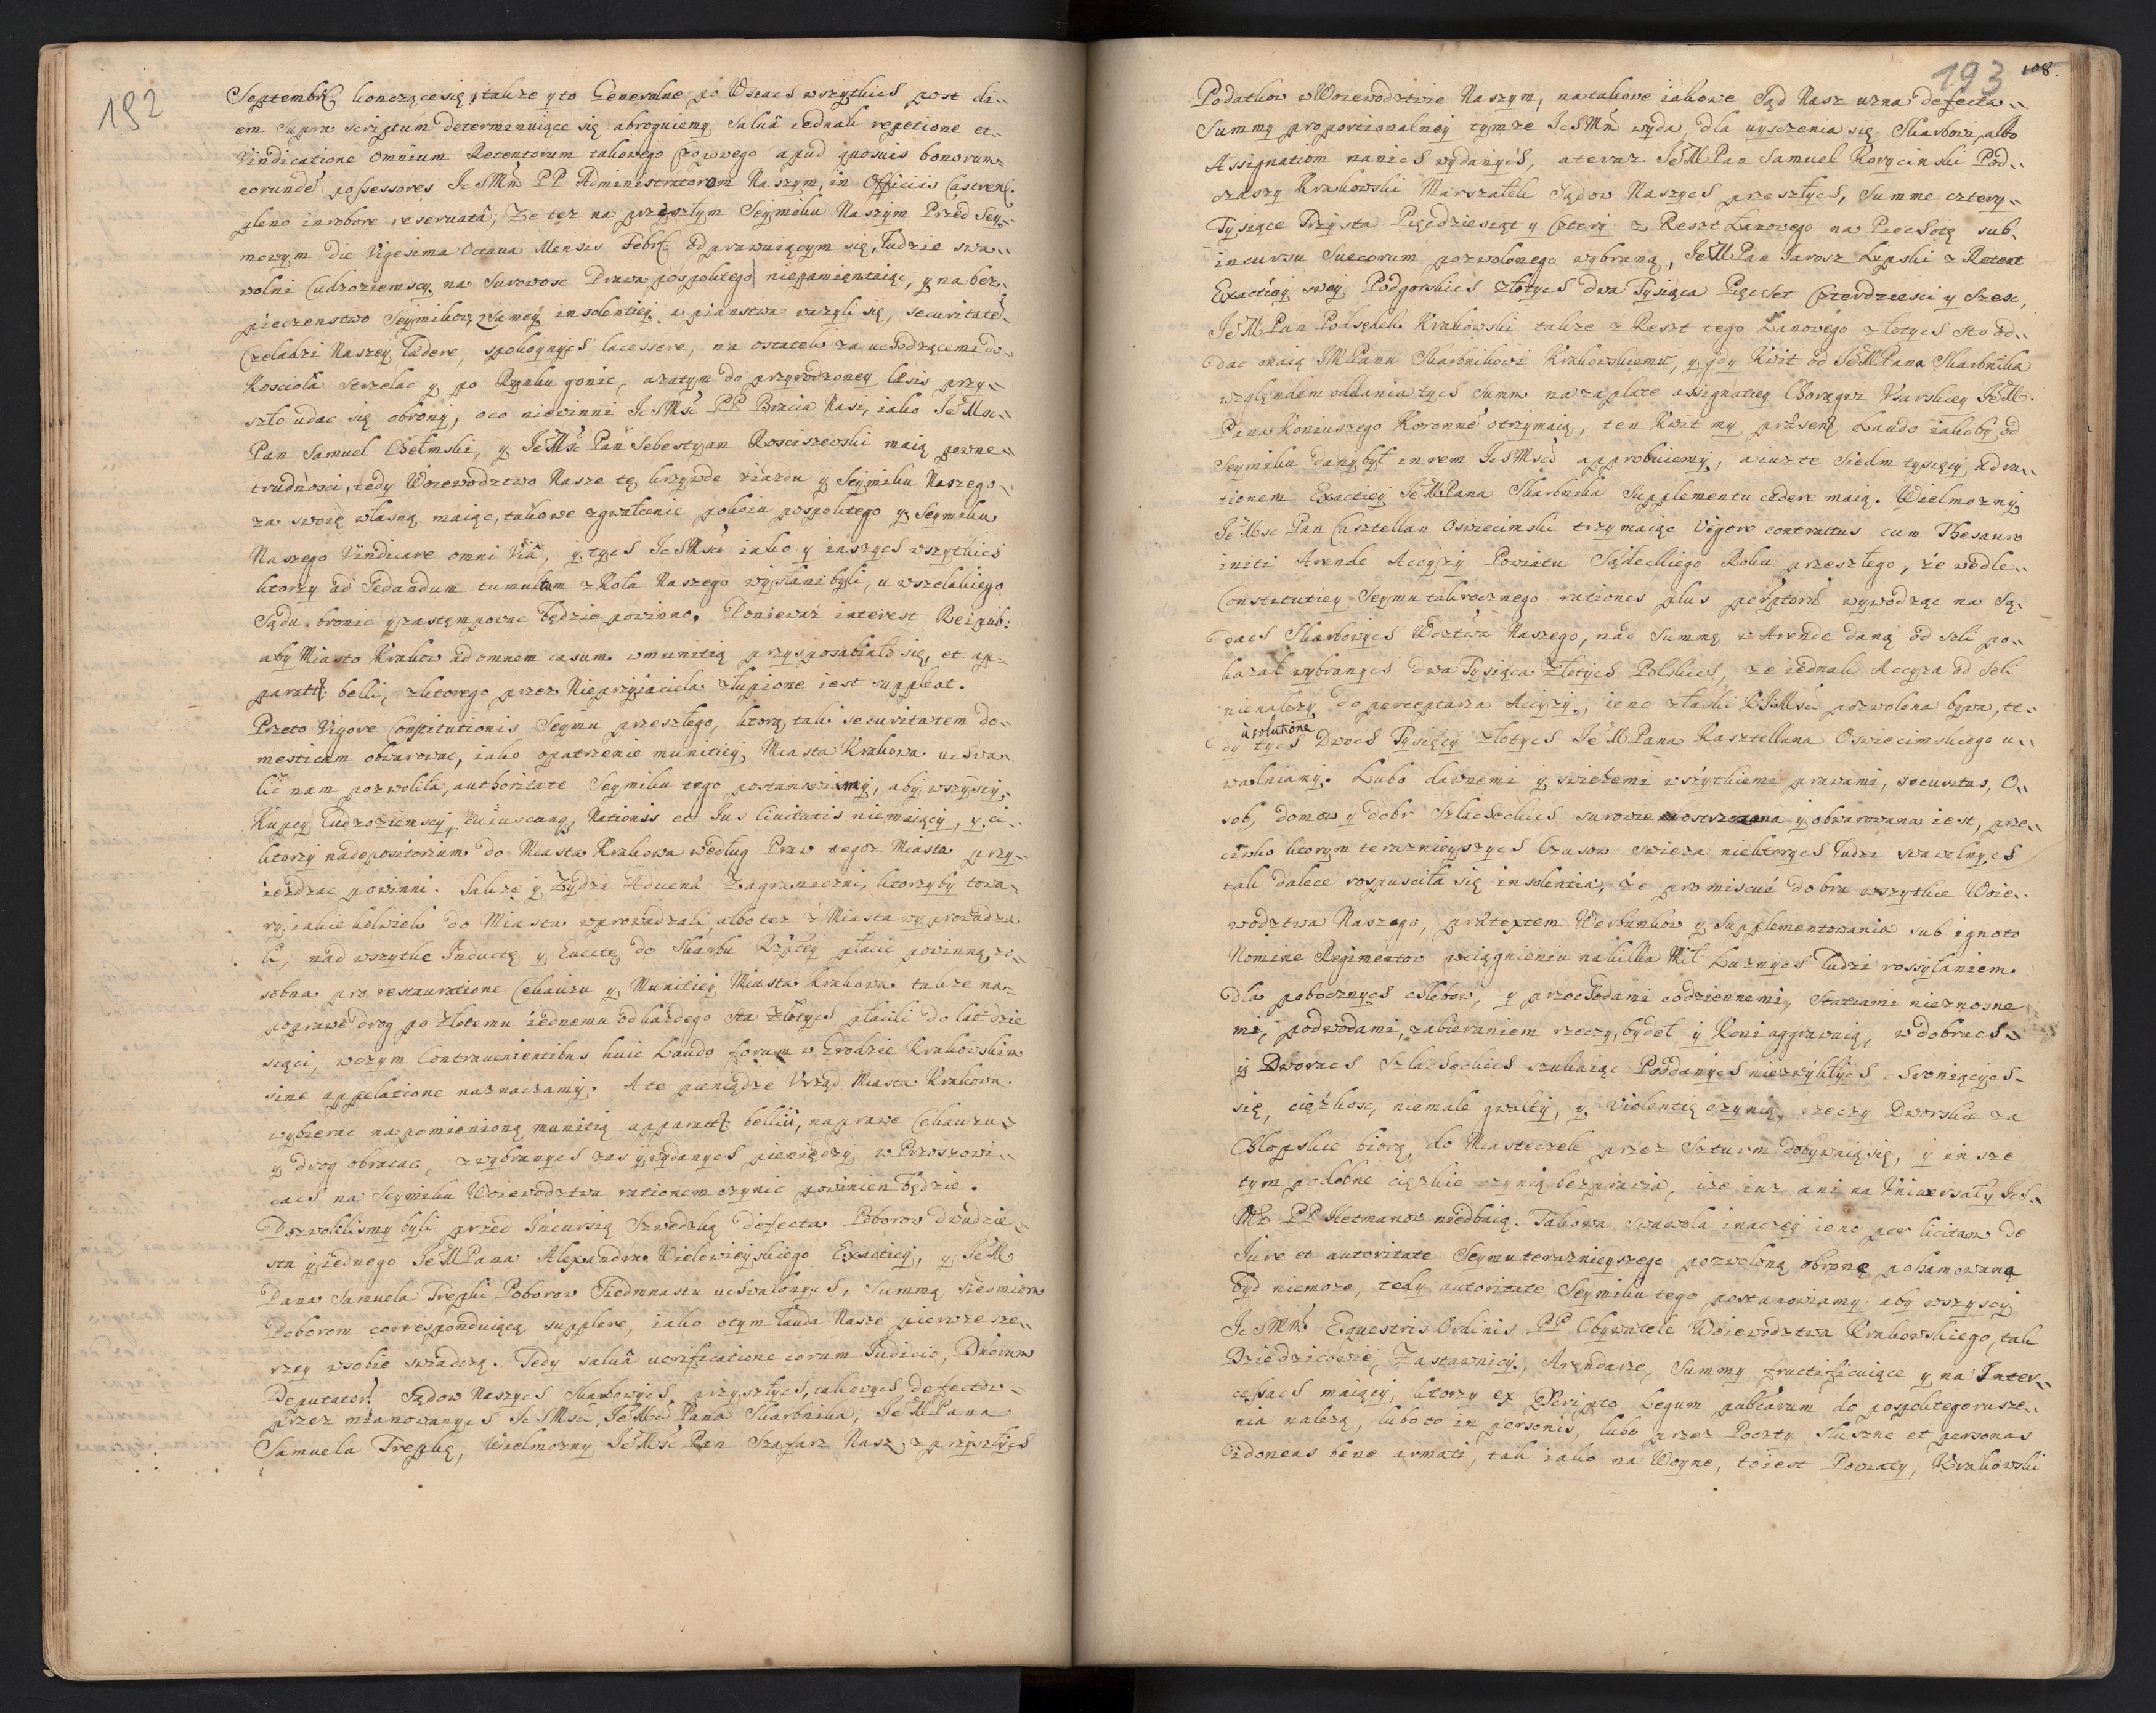 192
Septembr. konczące się, także y to Generalne po Wsiach wszytkich post di=
em supra scriptum determinuiące się abroguiemy, Saluâ iednak repetione et=
Vindicatione omnium Retentorum takowego Czopowego apud quosuis bonorum=
eorundē possessores IchMM PP Administratorom Naszym, in Officiis Castren.
pleno in robore reseruatâ; Ze tez na przeszłym Seymiku Naszym Przed Sey=
mowym die Vigesima Octaua Mensis Febr. odprawuiącym się, ludzie swa=
wolni Cudzoziemscy na Surowosc Prawa pospolitego niepamiętaiąc, y na bez=
pieczenstwo Seymikow, z samey insolentiey a pianstwa wazyli się, securitatē
Czeladzi Naszey lædere, spokoynych lacessere, na ostatek za uchodzącemi do=
Kosciola strzelac y po Rynku gonic, azatym do przyrodzoney læsis przy=
szło udac się obrony, oco niewinni IchMsc PP Bracia Nasi, iako IeMsc=
Pan Samuel Chełmski, y IeMsc Pan Sebestyan Rosciszewski maią pewne=
trudnosci, tedy Woiewodztwo Nasze tę krzywdę ziazdu y Seymiku Naszego=
za swoię własną maiąc, takowe zgwałcenie pokoiu pospolitego y Seymiku
Naszego Vindicare omni Viâ, y tych IchMsci iako y inszych wszytkich
ktorzy ad Sedandum tumultum z Koła Naszego wysłani byli, u wszelakiego
Sądu bronic y zastęmpowac będzie powinno. Poniewaz interest Reipub:
aby Miasto Krakow ad omnem casum w munitią przysposabiało się, et ap=
paratū belli, z ktorego przez Nieprzyiaciela złupione iest suppleat.
Przeto Vigore Constitutionis Seymu przeszłego, ktorą, tak securitatem do=
mesticam obwarowac, iako opatrzenie munitiey Miasta Krakowa uchwa=
lic nam pozwoliła, authoritate Seymiku tego postanowiamy, aby wszyscy=
Kupcy Cudzoziemscy, cuiuscunq Nationis et Ius Ciuitatis niemaiący, y ci=
ktorzy na depositorium do Miasta Krakowa według Praw tegoz Miasta przy=
iezdzac powinni. Takze y Zydzi Aduenæ Zagraniczni, ktorzyby towa=
ry iakie kolwiek do Miasta wprowadzali albo tez z Miasta wyprowadza
li, nad wszytke Inductę y Euectę do Skarbu Rzptey płacic powinną, zo=
sobna pro restauratione Cekauzu y Munitiey Miasta Krakowa takze na=
poprawę drog po złotemu iednemu od kazdego sta złotych płacili do lat dzie
siąci, wczym Contrauenientibus huic Laudo forum w Grodzie Krakowskim
sine appelatione naznaczamy. A te pieniądze Vrząd Miasta Krakowa
wybierac na pomienioną munitią apparatū bellii, naprawę Cekauzu=
y drog obracac, z wybranych zas y wydanych pieniędzy w Proszowi=
cach na Seymiku Woiewodztwa rationem czynic powinien będzie.
Dozwolilismy byli przed Incursią Szwedzką defecta Poborow dwudzie=
stu y iednego IeMPana Alexandra Wielowieyskiego Exactiey, y IeM
Pana Samuela Trepki Poborow Siedmnastu uchwalonych, Summą siedmiom
Poborom correspondującą supplere, iako otym lauda Nasze pierwsze sze=
rzey w sobie swiadczą. Tedy saluâ uerificatione coram Iudicio, Dnorum
Deputator. Sądow Naszych Skarbowych przyszłych, takowych defectow=
przez mianowanych IchMsci, IeMsci Pana Skarbnika, IeMPana
Samuela Trepkę, Wielmozny IeMsc Pan Szafarz Nasz z przyszłych
193 108.
Podatkow w Woiewodztwie Naszym, na takowe iakowe Sąd Nasz uzna defecta=
Summy proportionalney tymze IchMM wyda, dla uysczenia się Skarbowi albo
Assignatiom na nich wydanych, a teraz IeMPan Samuel Korycinski Pod=
czaszy Krakowski Marszałek Sądow Naszych przeszłych, Summe cztery=
Tysiące Trzysta Pięcdziesiąt y Cztery z Reszt Łanowego na Piechotę sub=
incursu Suecorum pozwolonego wybraną, IeMPan Jarosz Lipski z Retent
Exactiey swey Podgorskich złotych dwa Tysiąca Pięcset Czterdziesci y Szesc,
IeMPan Podsędek Krakowski takze z Reszt tego Łanowego złotych sto od=
dac maią IMPanu Skarbnikowi Krakowskiemu, y gdy Kwit od IeMPana Skarbnika
względem oddania tych Summ na zapłate assignatiey Chorągwi Vsarskiey IeM.
Pana Koniuszego Koronnē otrzymaią, ten Kwit my præsenti Laudo iakoby od
Seymiku dany był in rem IchMsciów approbuiemy, a iuz te Siedm tysięcy ad ra=
tionem Exactiey IeMPana Skarbnika Supplementu cedere maią. Wielmozny
IeMsc Pan Casztellan Oswiecimski trzymaiąc Vigore contractus cum Thesauro
initi Arende Accyzy Powiatu Sądeckiego Roku przeszłego, ze wedle=
Constitutiey Seymu takrocznego rationes plus perceptorū wywodząc na Są=
dach Skarbowych Wdztwa Naszego, nad Summę w Arende daną od soli po=
kazał wybranych dwa Tysiąca złotych Polskich, ze iednak Accyza od soli
nienalezy do perceptarza Accyzy, ieno z łaski KJMsci pozwolona bywa, te=
à solutione
dy tych Dwoch Tysięcy złotych IeMPana Kasztellana Oswiecimskiego u=
walniamy. Lubo dawnemi y swiezemi wszytkiemi prawami, securitas, O=
sob, domow y dobr Szlacheckich surowie ostrzezona y obwarowana iest, prze=
ciwko ktorym terazniejszych Czasow swieza niektorych ludzi swawolnych
tak dalece rospusciła się insolentia, ze promiscuè dobra wszytkie Woie=
wodztwa Naszego, prætextem Werbunkow y Supplementowania sub ignoto
Nomine Regimentow wciągnieniu na kilka Mil Luznych ludzi rossyłaniem
dla pobocznych chlebow, y przechodami codziennemi, Staciami nieznosne
mi, podwodami, zabieraniem rzeczy, bydeł y Koni aggrawuią, w dobrach=
y Dworach Szlacheckich szukaiąc Poddanych niezwykłych chroniących=
się, ciężkosc, niemałe gwałty, y Violentią czynią, rzeczy Dworskie za
Chłopskie biorą, do Miasteczek przez Szturm dobywaią się, y insze
tym podobne cięzkie czynią bezprawia, ize iuz ani na Vniwersały Ich=
MM PP Hetmanow niedbaią. Takowa swawola inaczey ieno per licitam de
Iure et autoritate Seymu terazniejszego pozwoloną obronę pohamowaną
bydz niemoze, tedy autoritate Seymiku tego postanowiamy aby wszyscy
IchMM Equestris Ordinis PP Obywatele Woiewodztwa Krakowskiego, tak
Dziedzicowie, Zastawnicy, Arendarze, Summy fructificuiące y na Inter=
cessach maiący, ktorzy ex Præscripto Legum publicarum do pospolitego rusze=
nia nalezą, lubo to in personis, lubo przez Poczty słuszne et personas
idoneas bene armati, tak iako na Woyne, toiest Powiaty, Krakowski